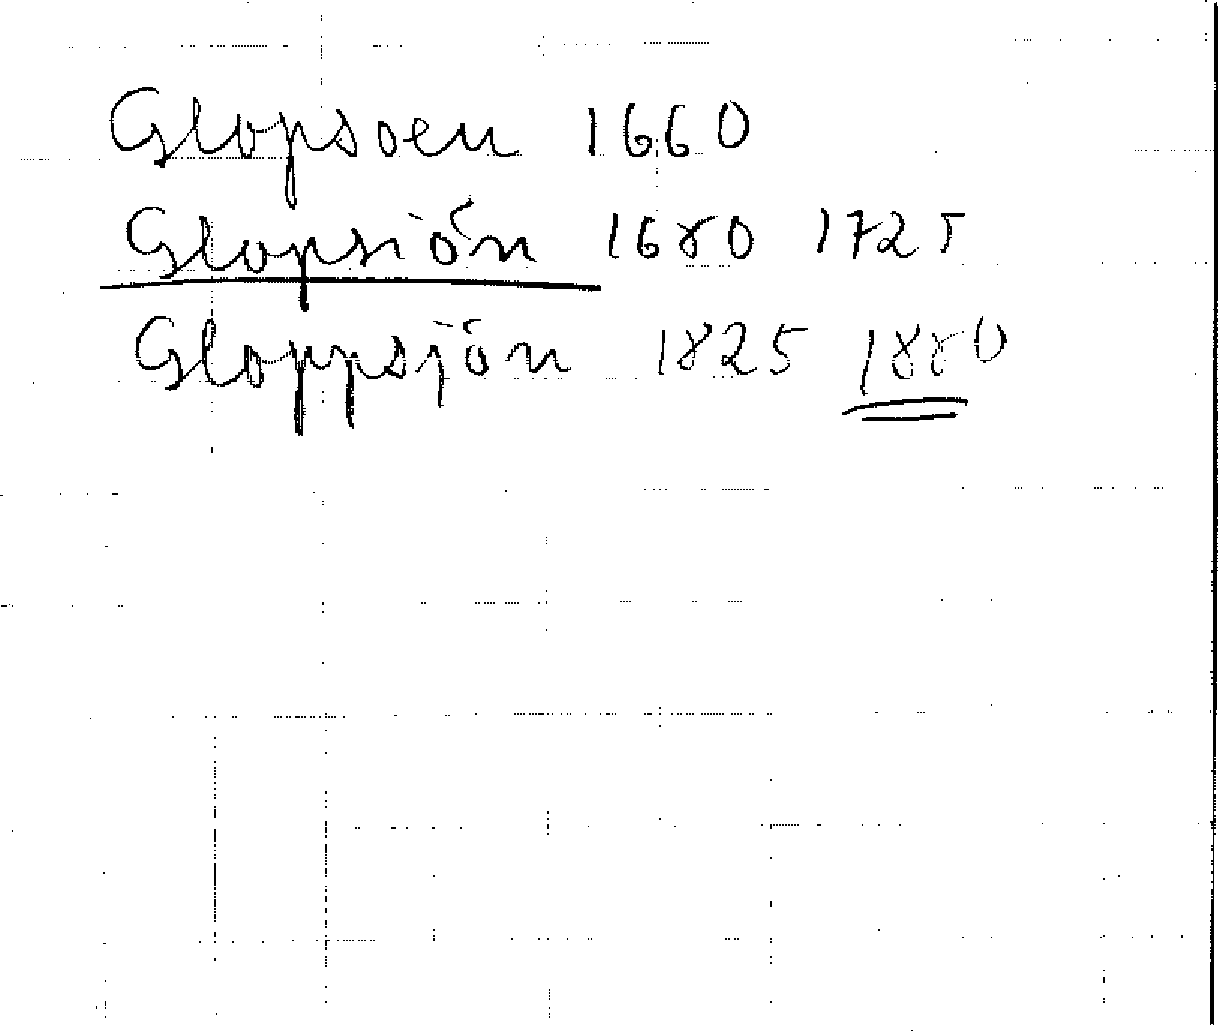 Glopsoen 1660
Glopsiön 1680 1725
Gloppsjön 1825 1880